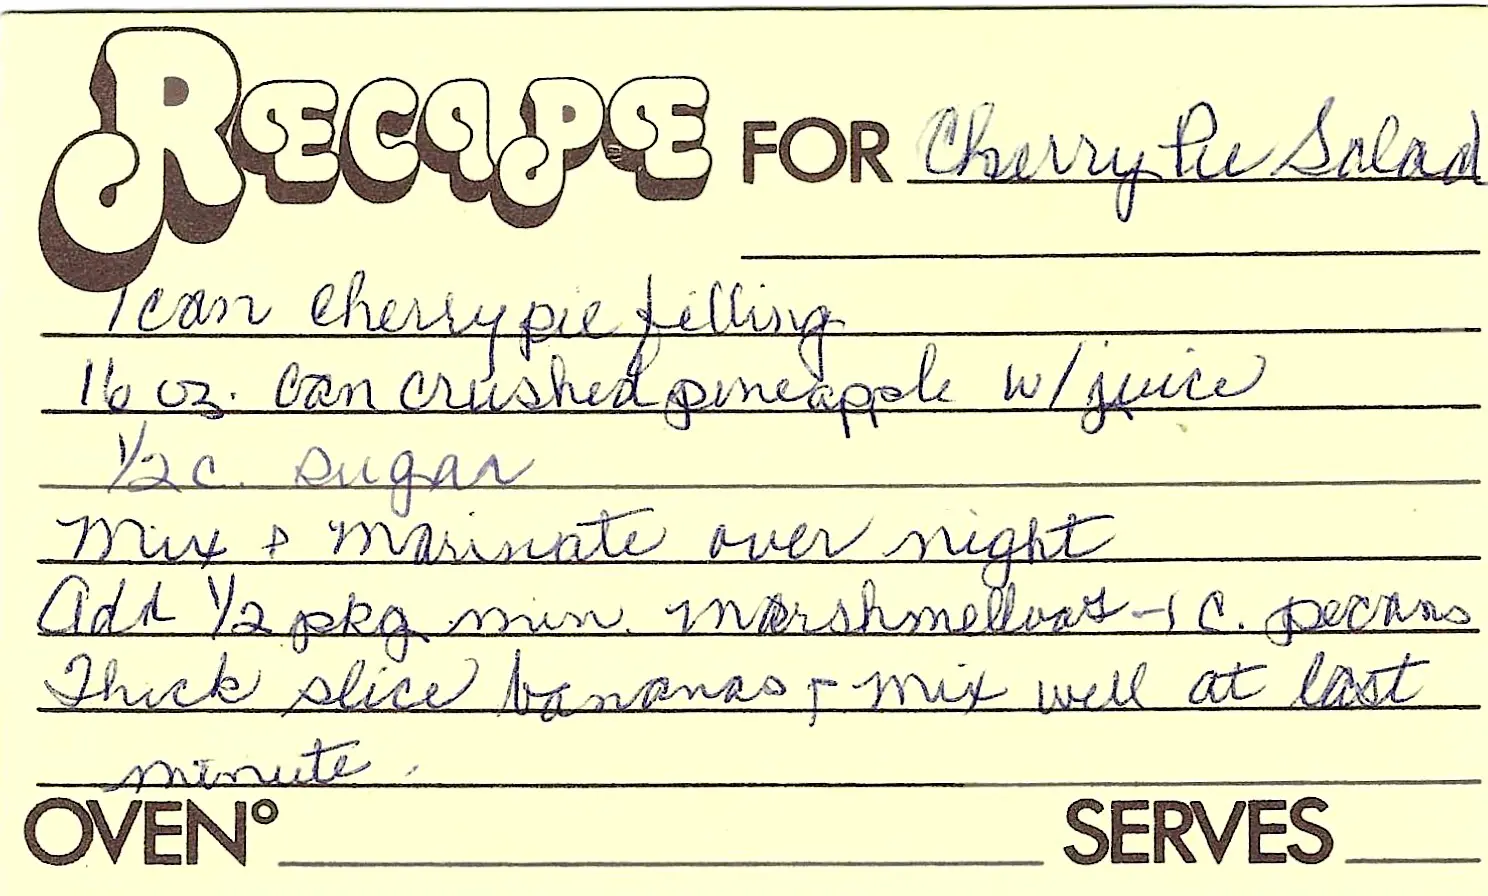 RECIPE FOR Cherry Pie Salad
1 can cherry pie filling
16 oz. can crushed pineapple w/juice
1/2 c. sugar
Mix & Marinate over night
Add 1/2 pkg min. Marshmellows - 1 C. pecans
Thick slice bananas & Mix well at last
minute.
OVEN° SERVES